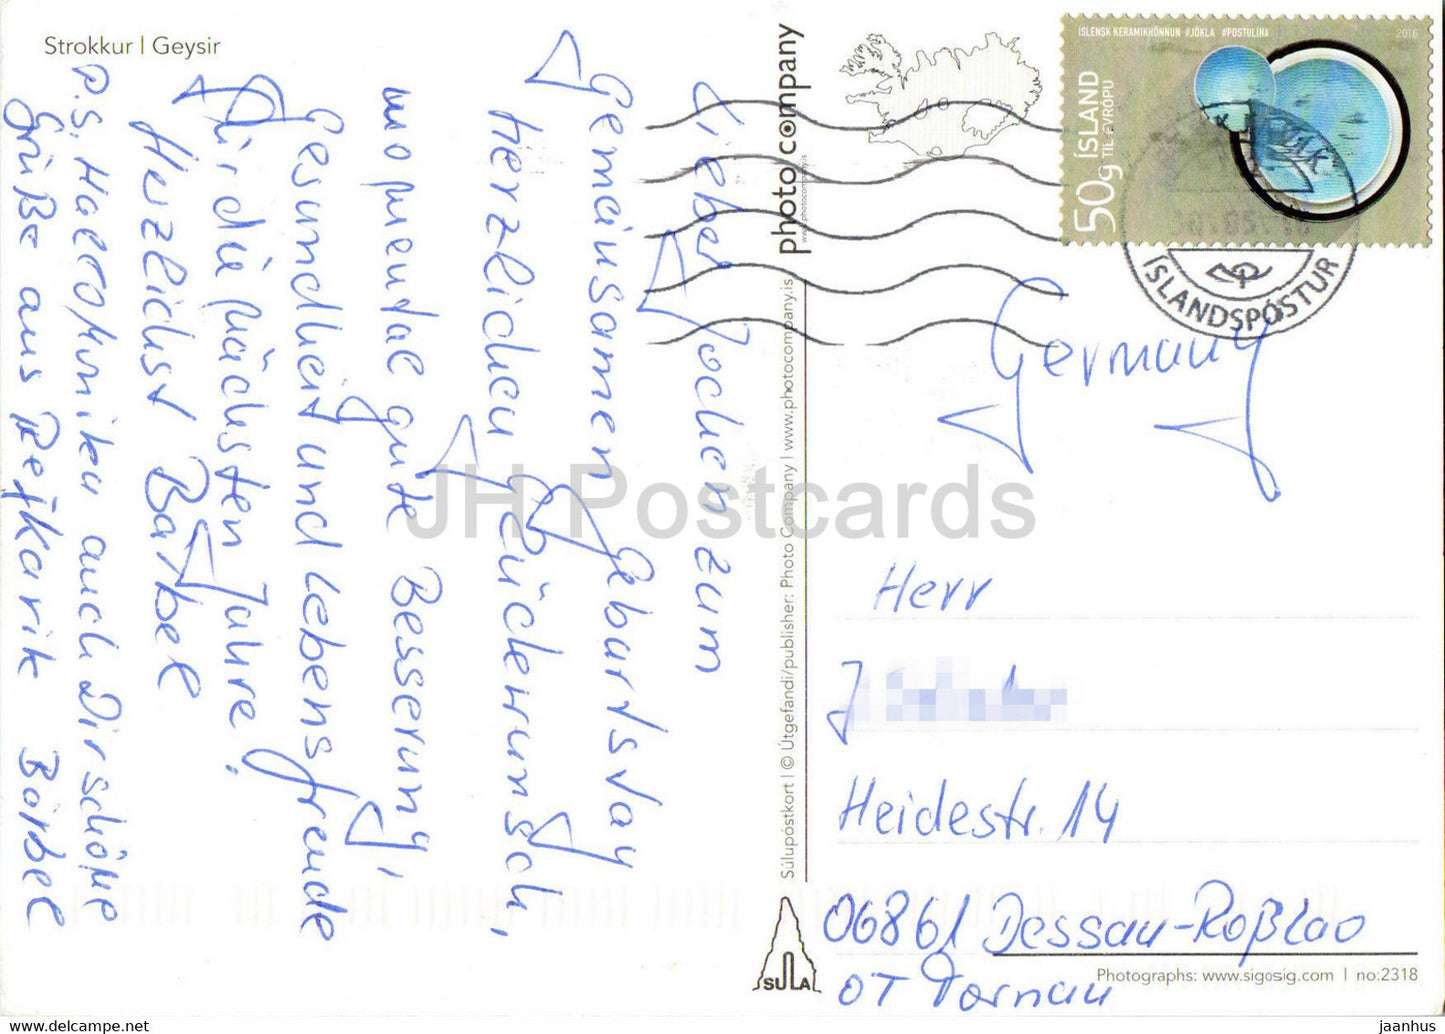 Strokkur | Geysir
Lieber Jochen zum
Gemeinsamen Geburtstag
Herzlichen Glückwunsch,
momental gute Besserung,
Gesundheit und Lebensfreude
für die nächsten Jahre!
Herzlichst Bärbel
P.S. auch
Grüße aus Bärbel
photo company
www.photocompany.is
ÍSLENSK KERAMIKHÖNNUN #JÖKLA #POSTULÍNA
2016
ÍSLAND
50g TIL EVRÓPU
ÍSLANDSPÓSTUR
Germany
Herr
J
Heidestr. 14
06861 Dessau-Roßlao
OT Tornau
Súlupóstkort | © Útgefandi/publisher: Photo Company | www.photocompany.is
SULA
Photographs: www.sigosig.com | no:2318
JH Postcards
jaanhus
www.delcampe.net